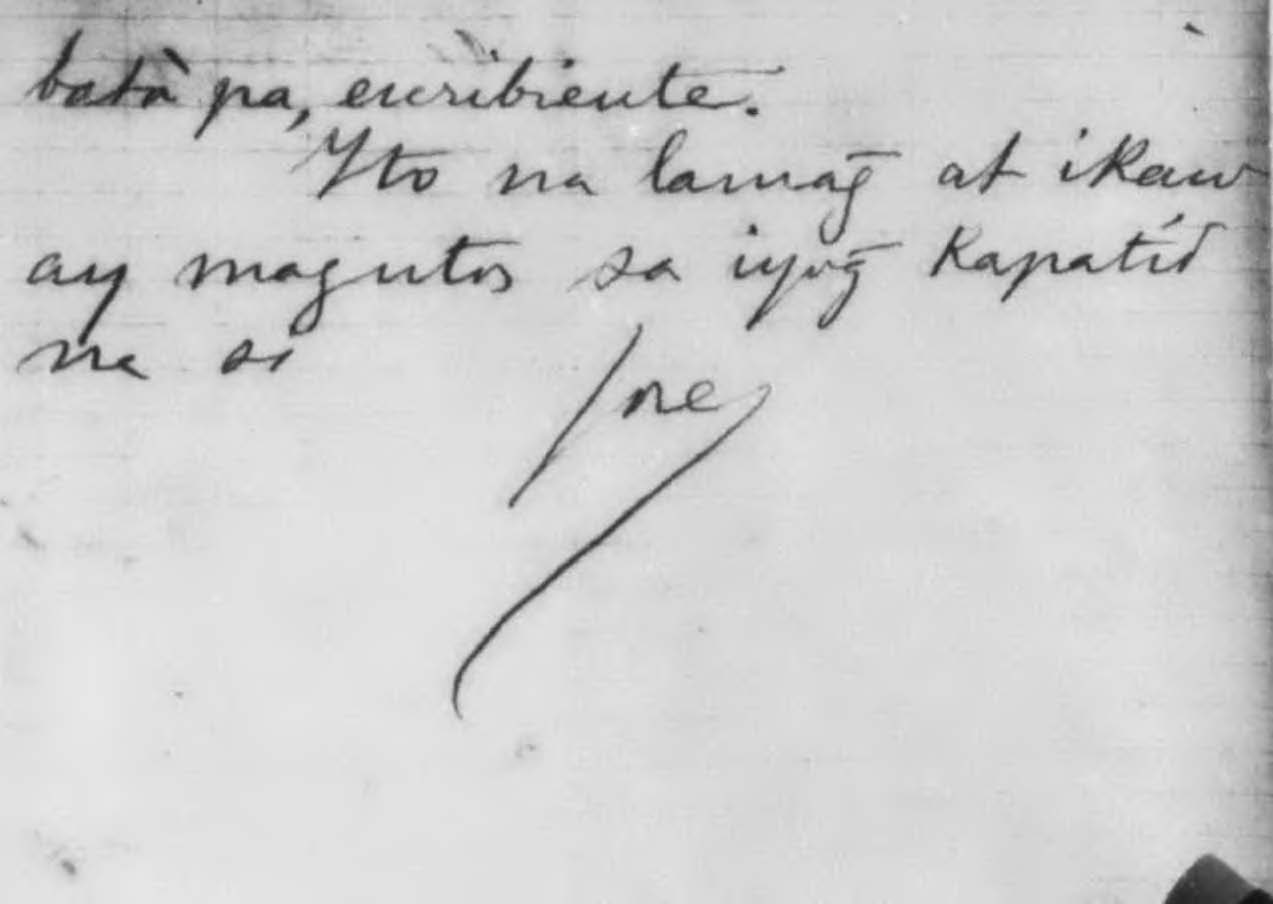 batà pa, escribiente.
Yto na lamag̃ at ikaw
ay magutos sa iyog̃ kapatid
na si
Jose